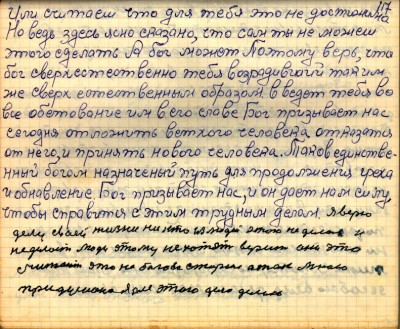 117
Или считаем что для тебя это не достижима
Но ведь здесь ясно сказано, что сам ты не можеш
этого сделать. А бог может. Поэтому верь, что
бог сверхестественно тебя возрадивший таким
же сверх естественным образом введет тебя во
все обетование им в его славе. Бог призывает нас
сегодня отложить ветхого человека отказатся
от него, и принять нового человека. Таков единстве-
нный богом назначеный путь для продолжения греха
и обнавление. Бог призывает нас, и он дает нам силу,
чтобы справится с этим трудным делом. Я верю
делу своей жизни никто из людей этого не делае и
неделоит люди этому не хотят верит они это
считают это не богова старый а так много
придумано для этого дело делом